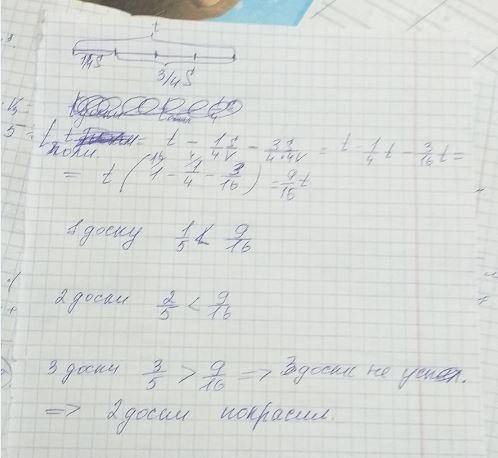 t
1/4 S
3/4 S
t = t - 1/4 S/V - 3/4 · S/4V = t - 1/4 t - 3/16 t =
= t (1 - 1/4 - 3/16) = 9/16 t
1 доску 1/5 < 9/16
2 доски 2/5 < 9/16
3 доски 3/5 > 9/16 => 3 доски не успел.
=> 2 доски покрасил.